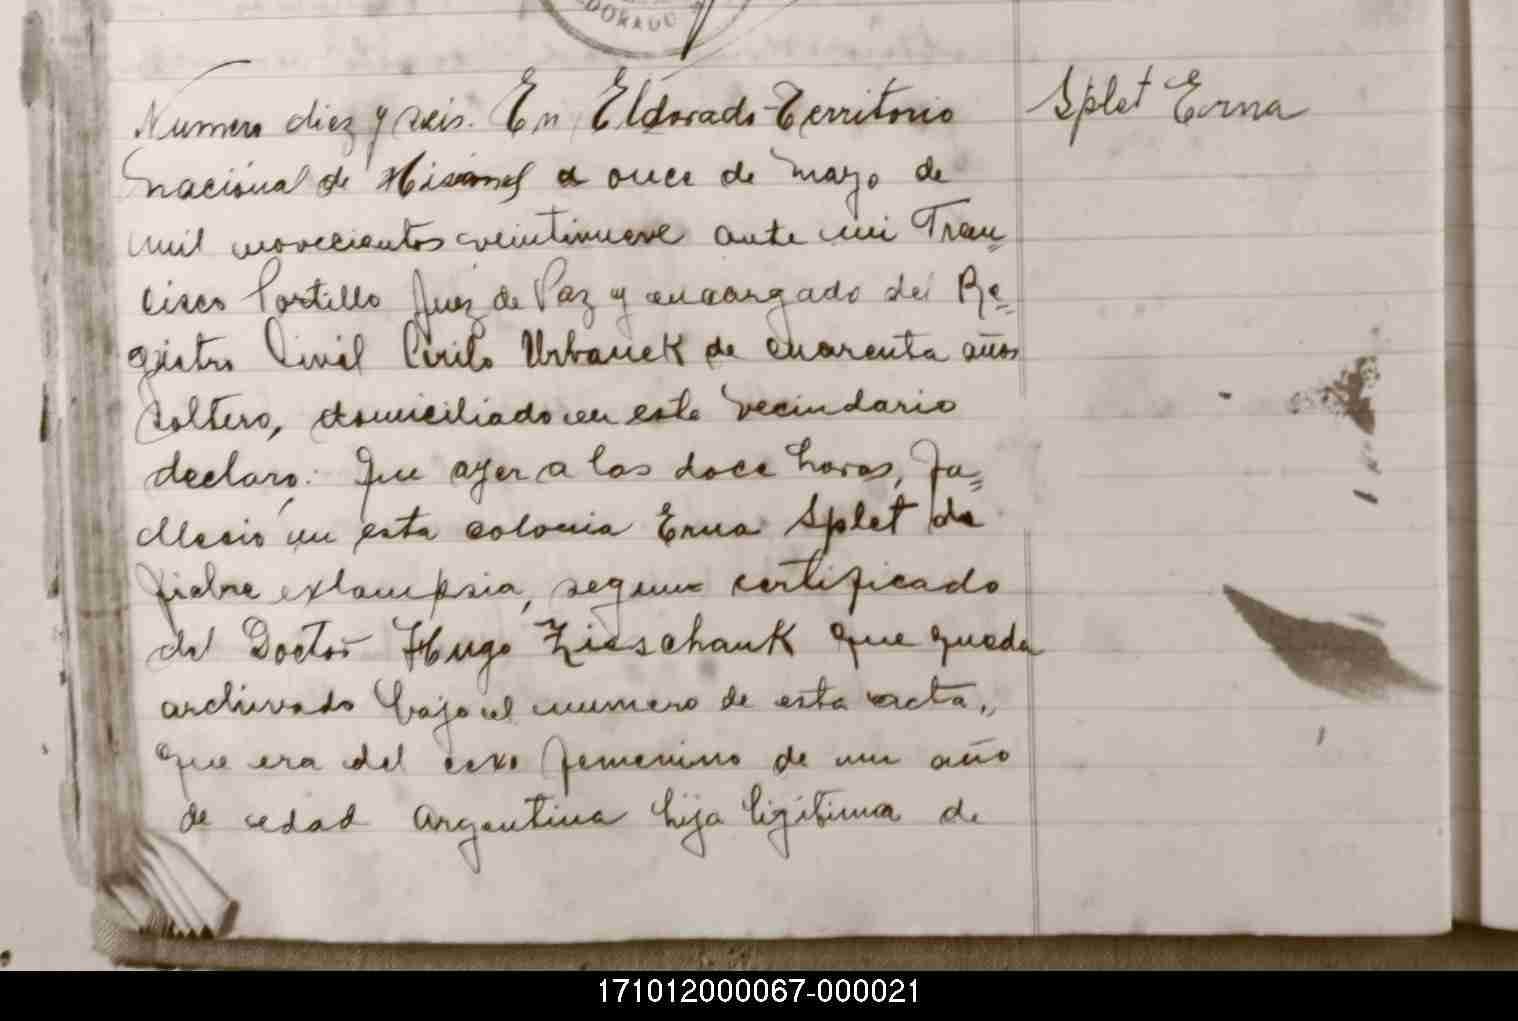 DORADO
Numero diez y seis. En Eldorado Territorio
Splet Erna
nacional de Misiones a once de mayo de
mil novecientos veintinueve ante mi Fran=
cisco Portillo Juez de Paz y encargado del Re=
gistro Civil Cirilo Urbanek de cuarenta años
soltero, domiciliado en este vecindario
declaro: Que ayer a las doce horas, fa=
llecio en esta colonia Erna Splet de
fiebre exlampsia, segun certificado
del Doctor Hugo Zieschank que queda
archivado bajo el numero de esta acta.,
que era del sexo femenino de un año
de edad Argentina hija ligitima de
171012000067-000021